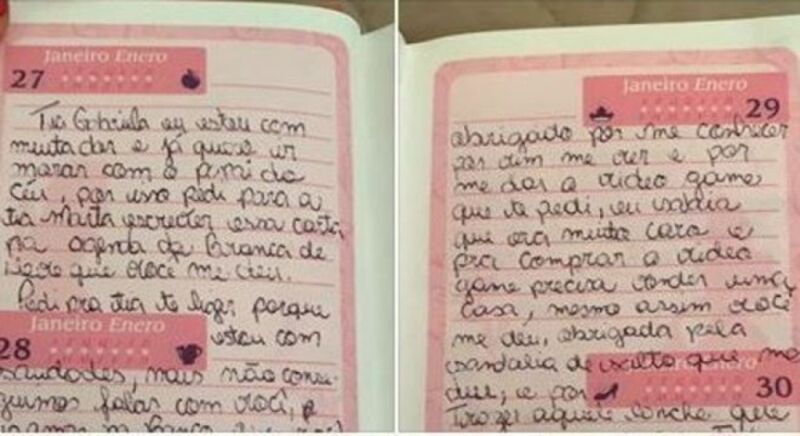 Janeiro Enero
27
Tia Gabriela eu estou com
muita dor e já quero ir
morar com o papai do
céu, por isso pedi para a
tia Marta escrever essa carta
na agenda da Branca de
que você me deu.
Pedi pra tia te ligar porque
Janeiro Enero
estou com
28
saudades, mais não conse-
guimos falar com você, e
Janeiro Enero
29
obrigado por me conhecer
por vim me ver e por
me dar o video game
que te pedi, eu sabia
que era muito caro e
pra comprar o video
game precisa vender uma
casa, mesmo assim você
me deu, obrigada pela
sandalia de salto que me
Enero
deu, e por
30
Trazer aquele lanche que